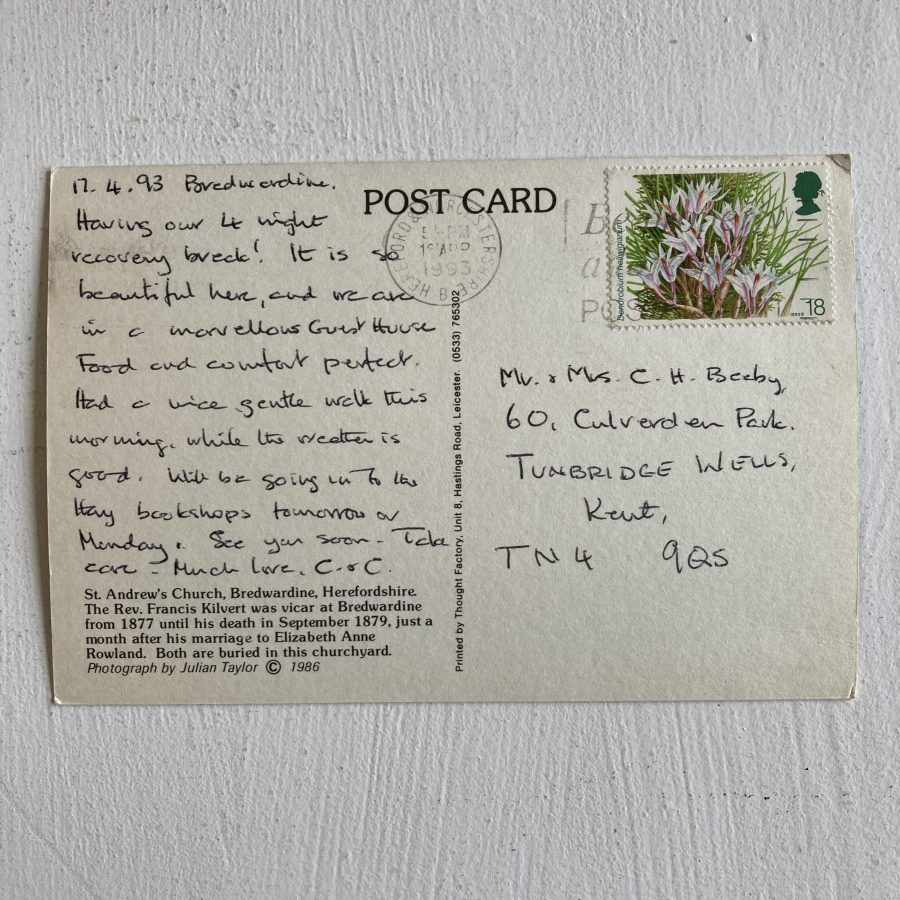 17.4.93 Bredwardine.
Having our 4 night
recovery break! It is so
beautiful here, and we are
in a marvellous Guest House
Food and comfort perfect.
Had a nice gentle walk this
morning, while the weather is
good. Will be going in to the
Hay bookshops tomorrow or
Monday. See you soon - Take
care - Much love, C. & C.
St. Andrew's Church, Bredwardine, Herefordshire.
The Rev. Francis Kilvert was vicar at Bredwardine
from 1877 until his death in September 1879, just a
month after his marriage to Elizabeth Anne
Rowland. Both are buried in this churchyard.
Photograph by Julian Taylor © 1986
Printed by Thought Factory, Unit 8, Hastings Road, Leicester. (0533) 765302
POST CARD
HEREFORD & WORCESTERSHIRE B
PM
APR
1993
Dendrobium hellwigianum
18
Mr. & Mrs. C. H. Beeby,
60, Culverden Park.
TUNBRIDGE WELLS,
Kent,
TN4 9QS